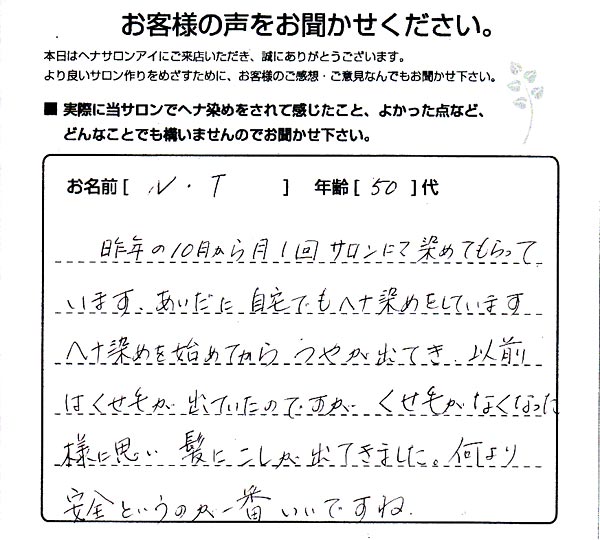 お客様の声をお聞かせください。
本日はヘナサロンアイにご来店いただき、誠にありがとうございます。
より良いサロン作りをめざすために、お客様のご感想・ご意見なんでもお聞かせ下さい。
■ 実際に当サロンでヘナ染めをされて感じたこと、よかった点など、
どんなことでも構いませんのでお聞かせ下さい。
お名前 [ N・T ] 年齢 [ 50 ] 代
昨年の10月から月1回サロンにて染めてもらって
います、あいだに自宅でもヘナ染めをしています
ヘナ染めを始めてから つやが出てき、以前
はくせ毛が出ていたのですが くせ毛がなくなった
様に思い 髪にこしが出てきました。何より
安全というのが一番いいですね.